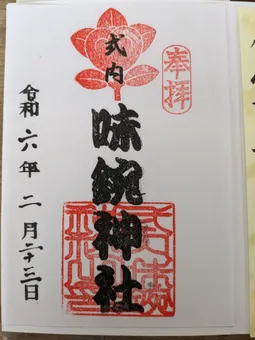 奉拝
式内
味鋺神社
令和六年二月二十三日